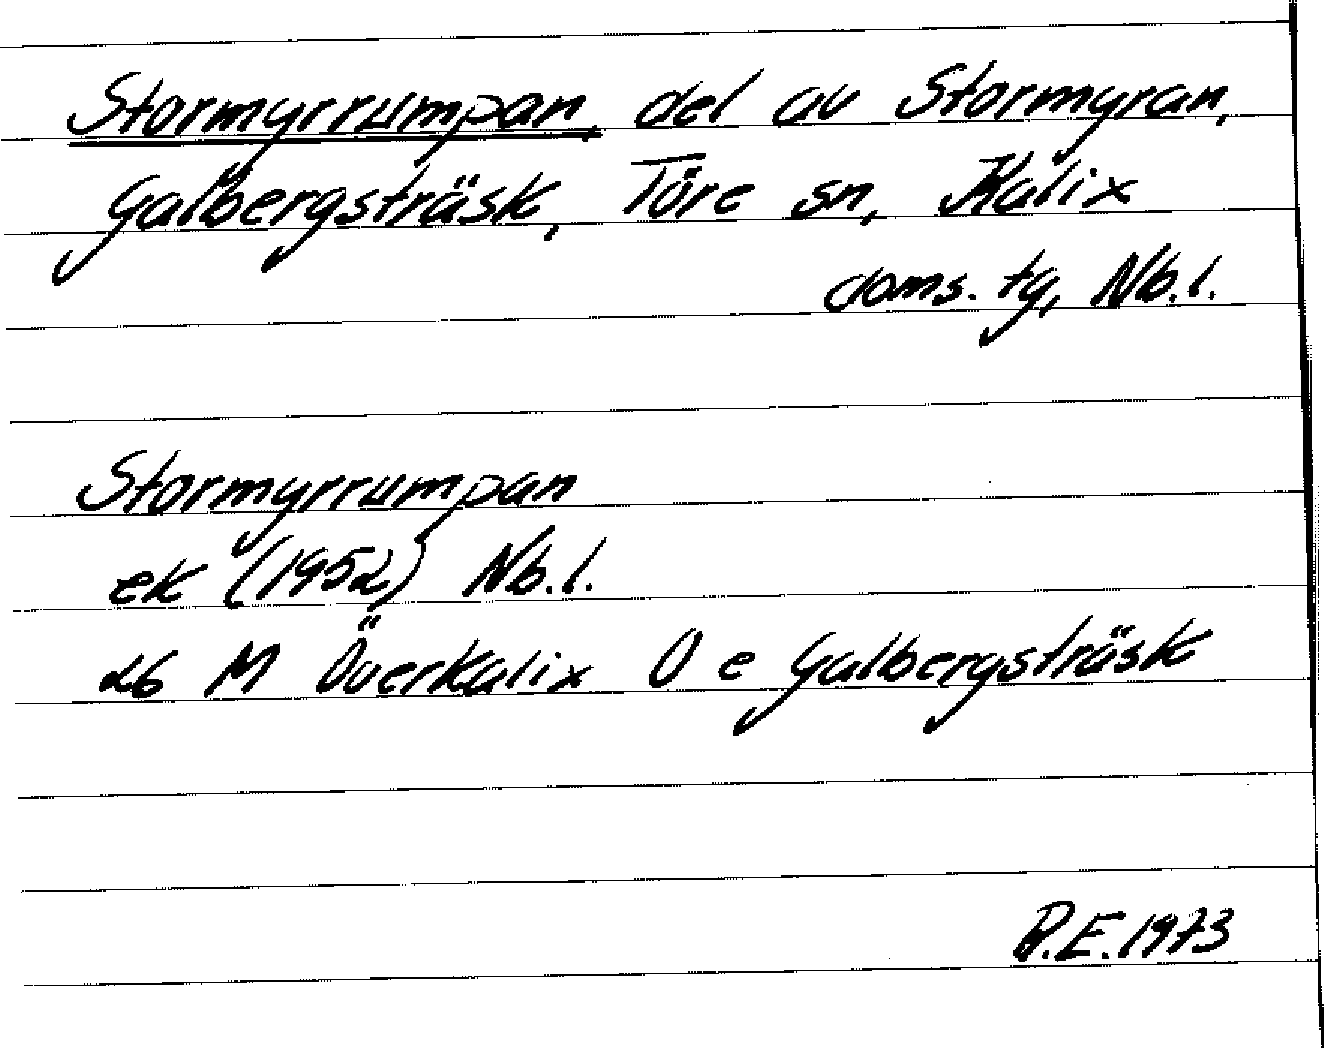 Stormyrrumpan, del av Stormyran,
Galbergsträsk, Töre sn, Kalix
doms. tg, Nb.l.
Stormyrrumpan
ek (1952) Nb.l.
26 M Överkalix O e Galbergsträsk
R.E. 1973